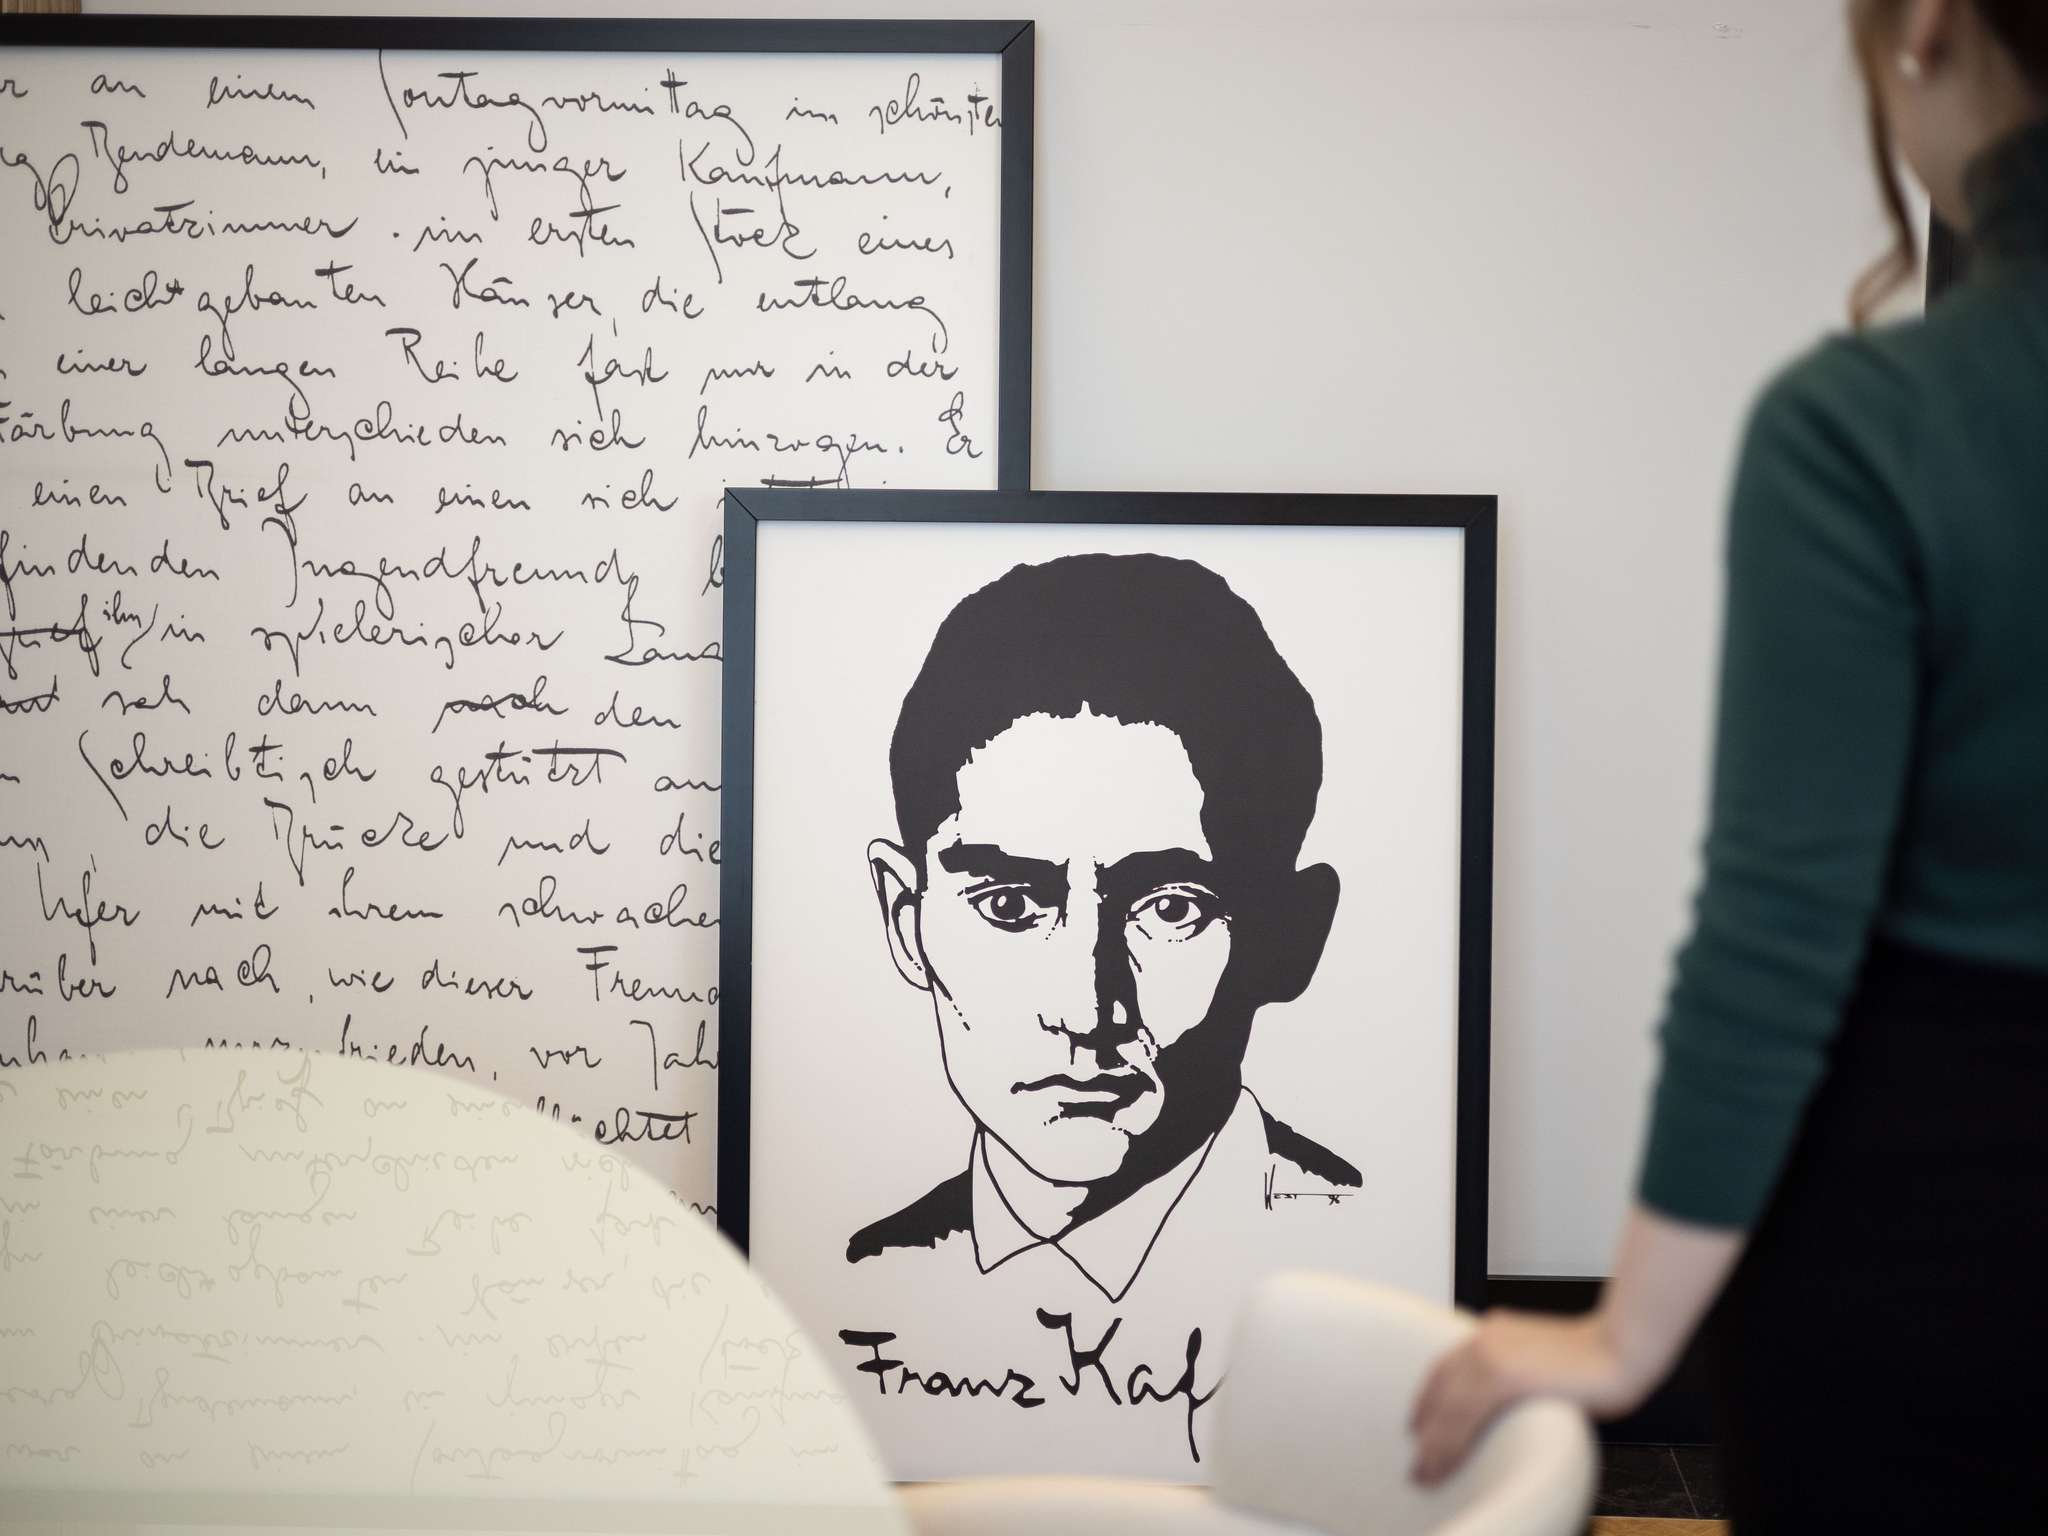 an einem Sontagvormittag im schönsten
Bendemann, ein junger Kaufmann,
Privatzimmer im ersten Stock eines
leichtgebauten Häuser, die entlang
einer langen Reihe fast nur in der
Färbung unterschieden sich hinzogen. Er
einen Brief an einen sich
findenden Jugendfreund b
ihn in spielerischer Lang
sah dann nach den
Schreibtisch gestützt au
die Brücke und die
Ufer mit ihrem schwachen
rüber nach, wie dieser Freund
unzufrieden, vor Jah
üchtet
West 96
Franz Kaf